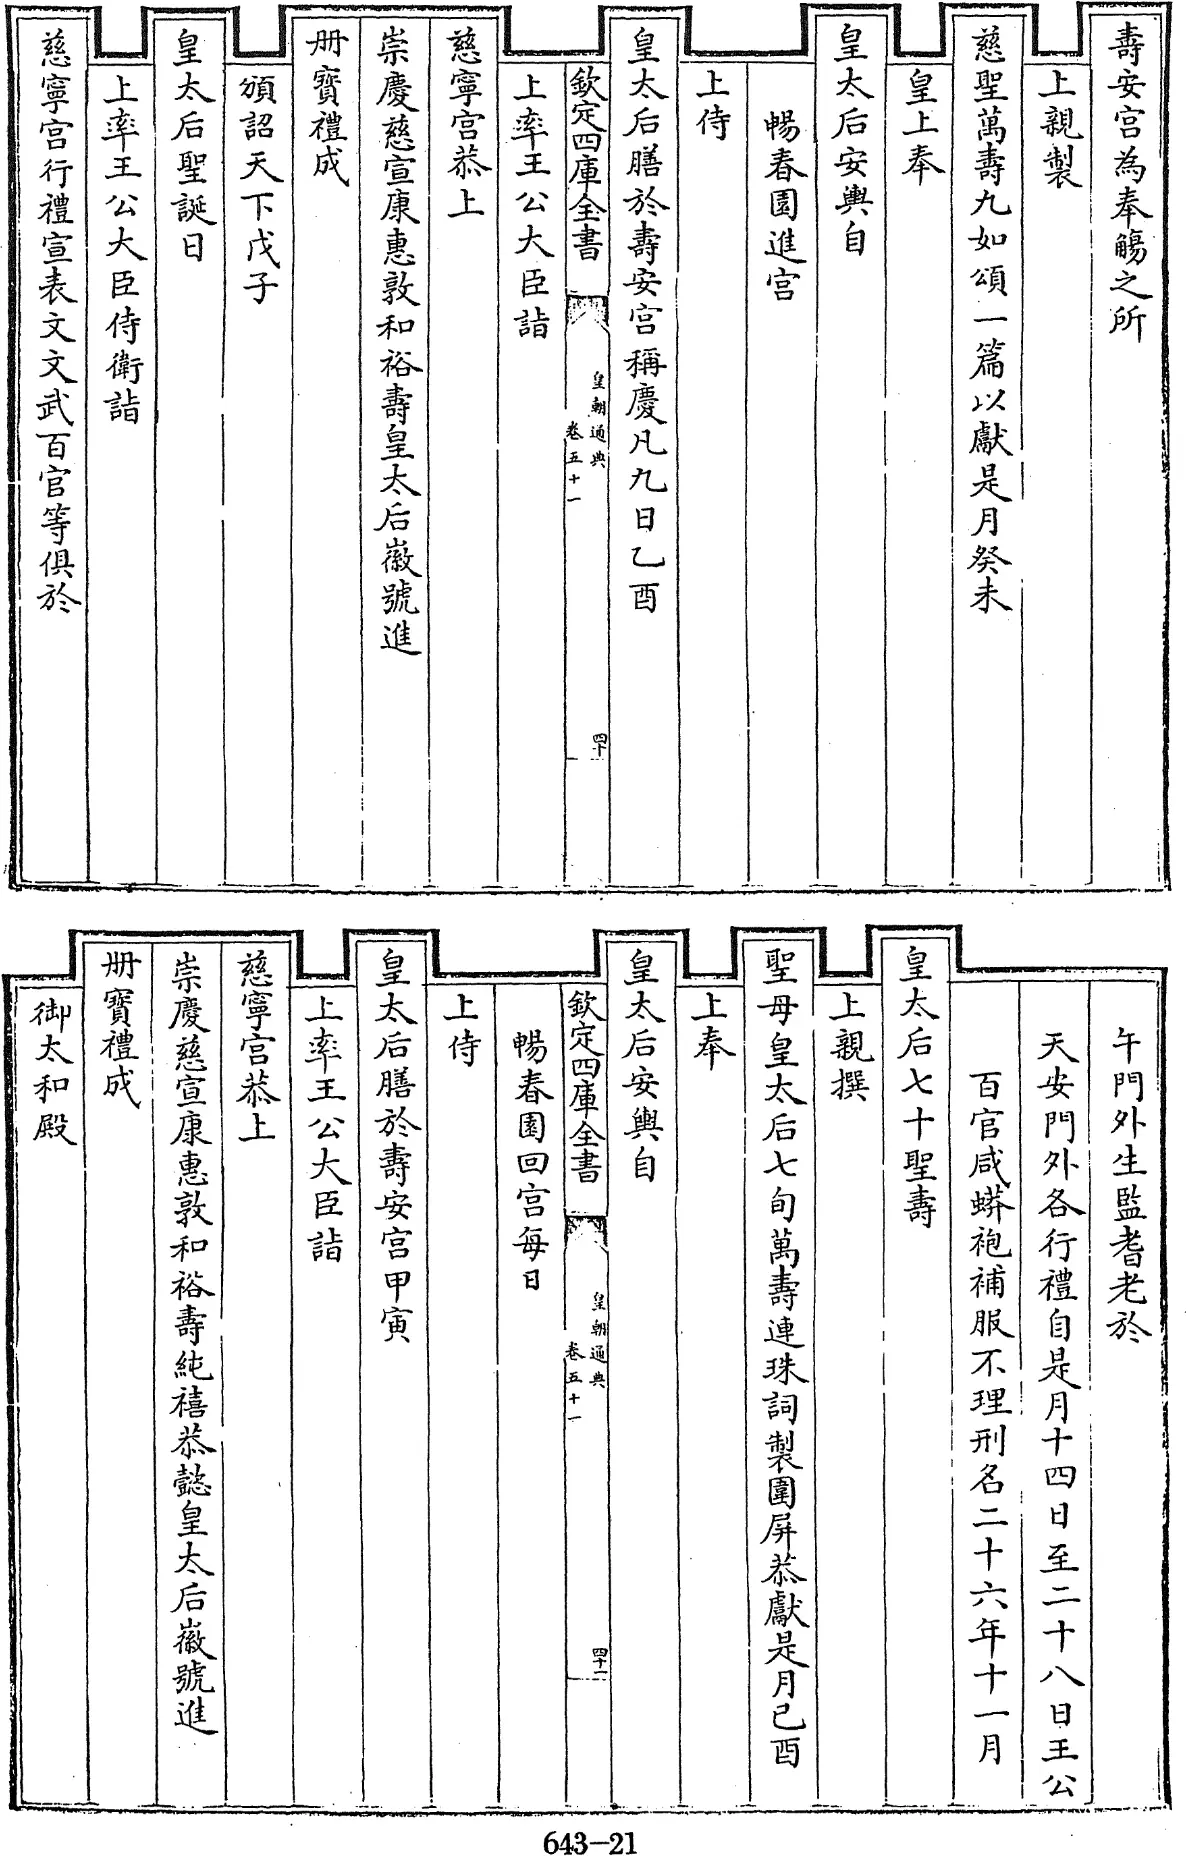 壽安宫為奉觴之所
上親製
慈聖萬壽九如頌一篇以獻是月癸未
皇上奉
皇太后安輿自
暢春園進宫
上侍
皇太后膳於壽安宫稱慶凡九日乙酉
欽定四庫全書
皇朝通典
卷五十一
四十
上率王公大臣詣
慈寧宫恭上
崇慶慈宣康惠敦和裕壽皇太后徽號進
冊寳禮成
頒詔天下戊子
皇太后聖誕日
上率王公大臣侍衛詣
慈寧宫行禮宣表文文武百官等俱於
午門外生監耆老於
天安門外各行禮自是月十四日至二十八日王公
百官咸蟒袍補服不理刑名二十六年十一月
皇太后七十聖壽
上親撰
聖母皇太后七旬萬壽連珠詞製圍屏恭獻是月己酉
上奉
皇太后安輿自
欽定四庫全書
皇朝通典
卷五十一
四十一
暢春園回宫每日
上侍
皇太后膳於壽安宫甲寅
上率王公大臣詣
慈寧宫恭上
崇慶慈宣康惠敦和裕壽純禧恭懿皇太后徽號進
冊寳禮成
御太和殿
643-21